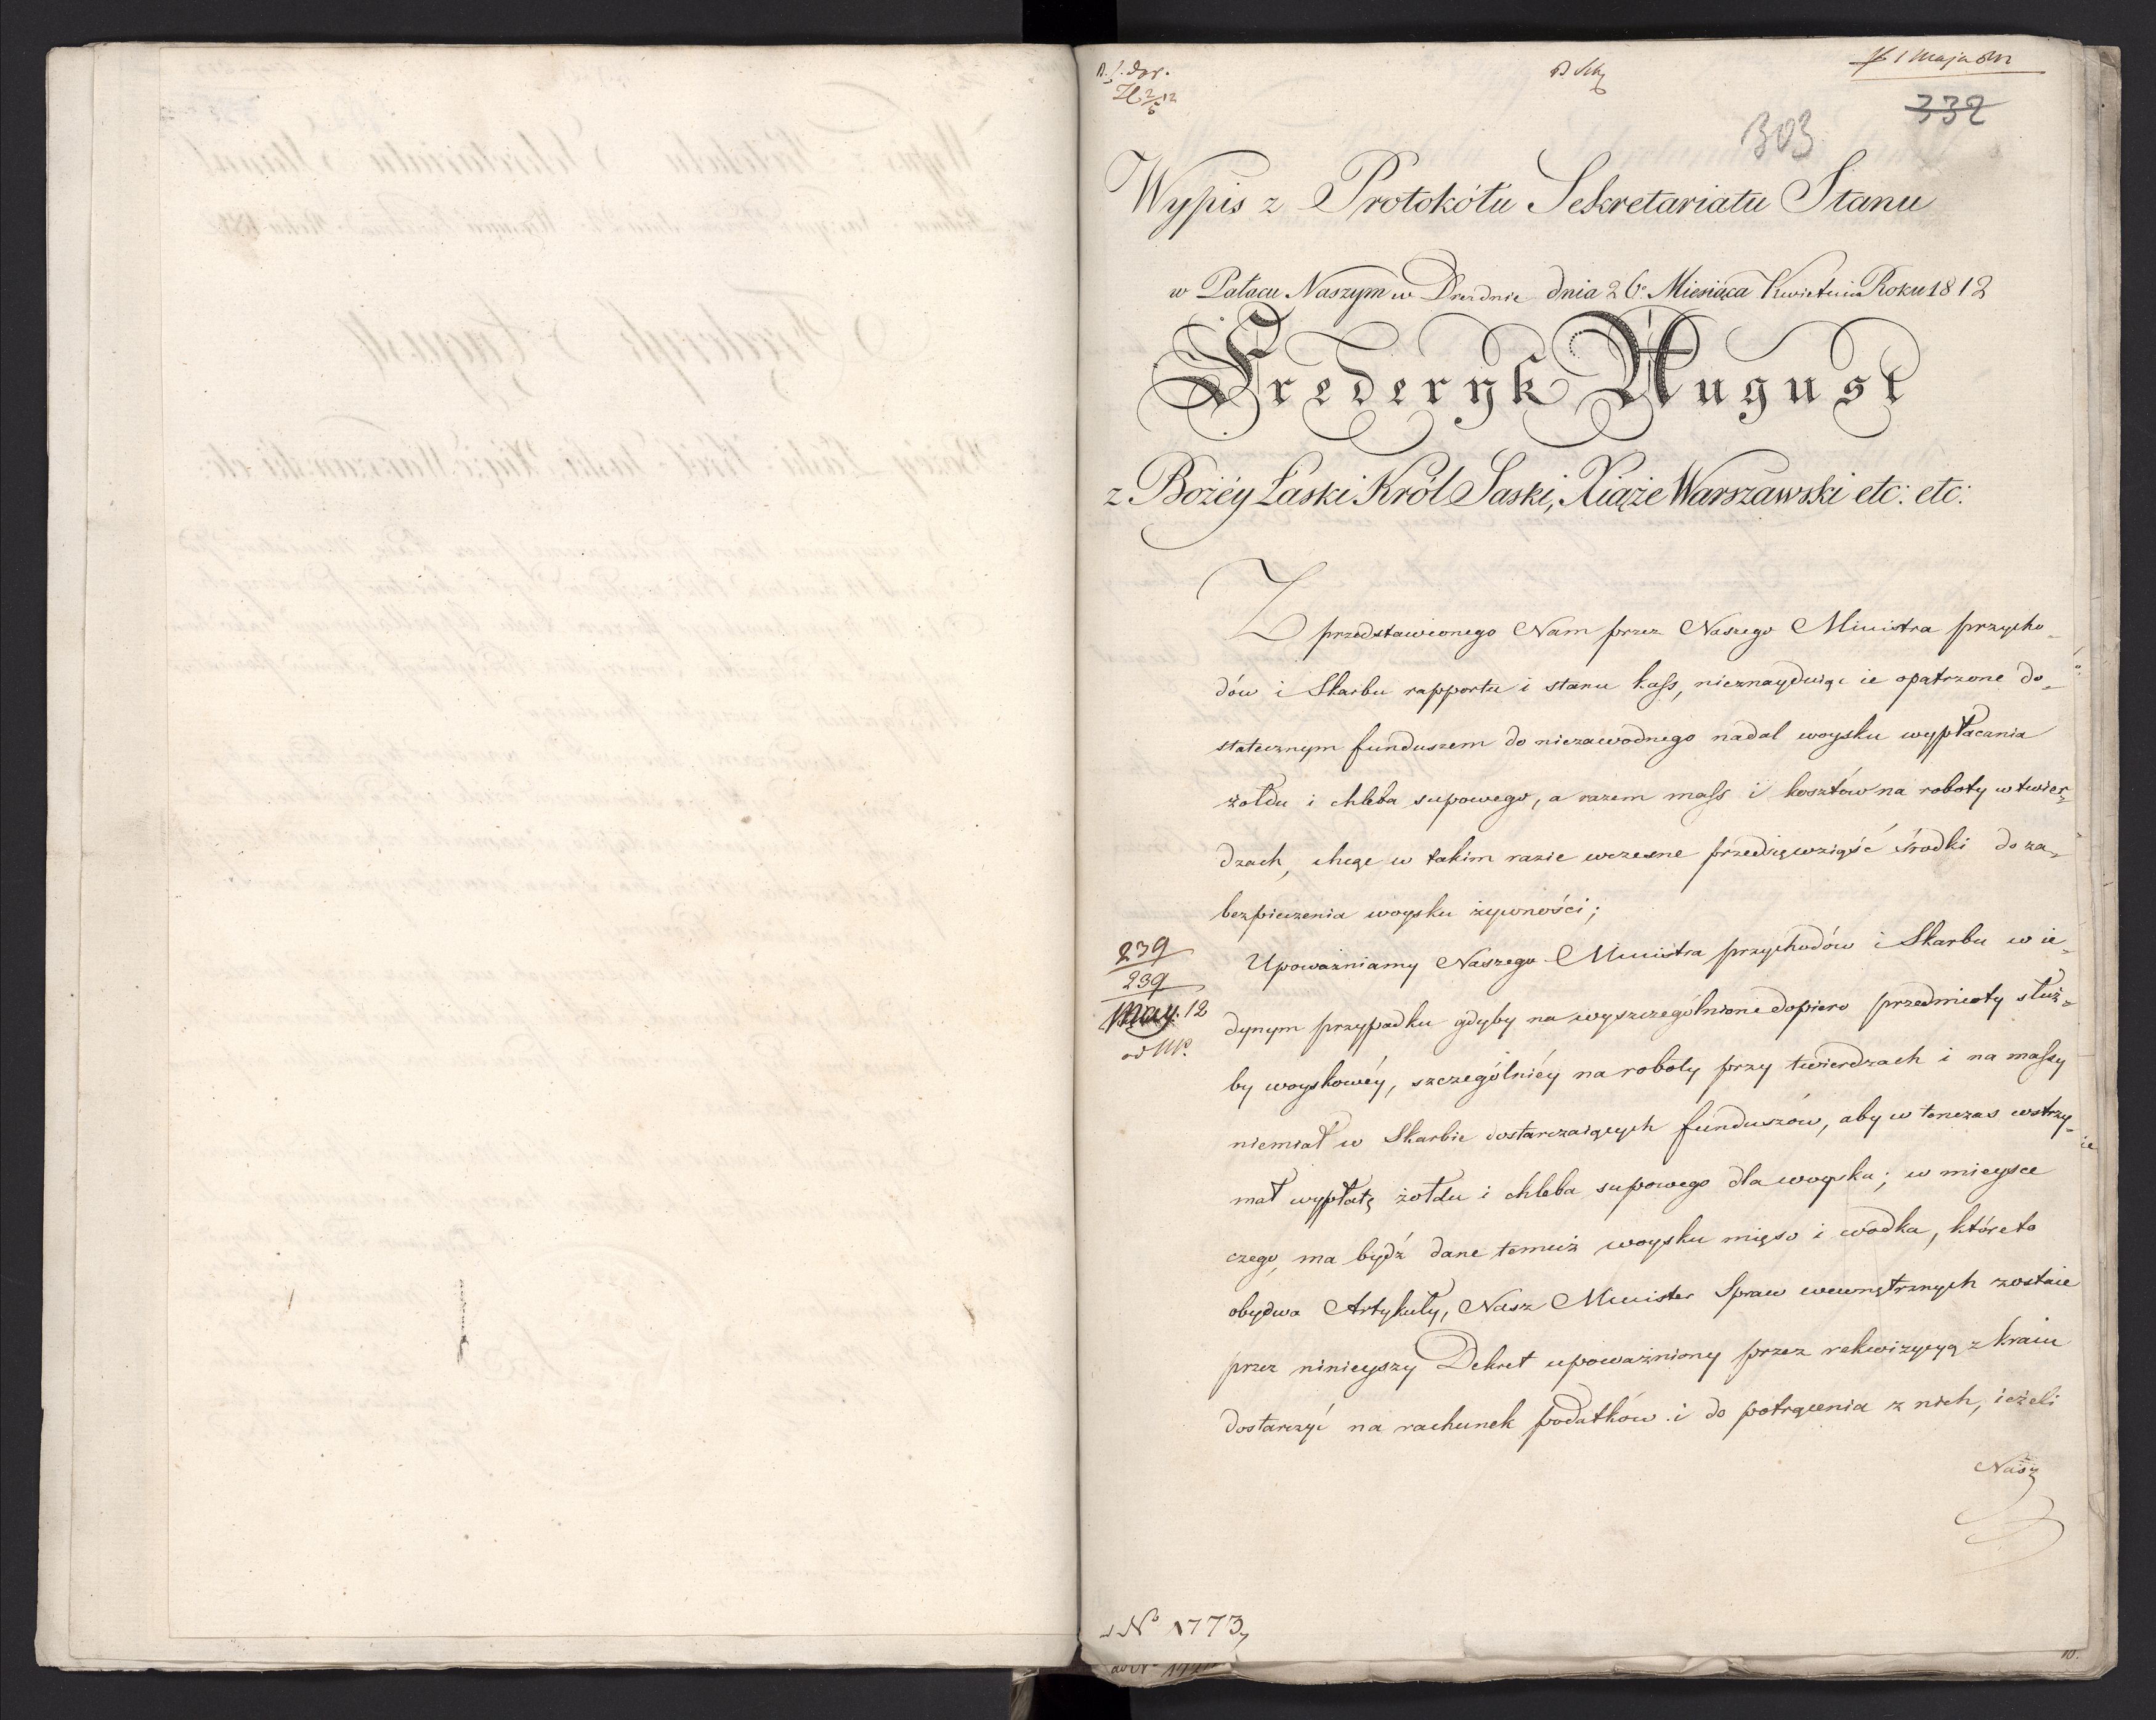 1 Maja
332
303
Wypis z Protokółu Sekretariatu Stanu
w Pałacu Naszym w Dreźdnie dnia 26º Miesiąca Kwietnia Roku 1812
Frederyk August
z Bożéy Łaski Król Saski, Xiąże Warszawski etc: etc:
Z przedstawionego Nam przez Naszego Ministra przycho-
dów i Skarbu rapportu i stanu kass, nieznayduiąc ie opatrzone do-
statecznym funduszem do niezawodnego nadal woysku wypłacania
żołdu i chleba supowego, a razem mass i kosztów na roboty w twier-
dzach, chcąc w takim razie wczesne przedsięwziąść środki do za-
bezpieczenia woysku żywności;
Upoważniamy Naszego Ministra przychodów i Skarbu w ie-
dynym przypadku gdyby na wyszczególnione dopiero przedmioty służ-
by woyskowéy, szczególniéy na roboty przy twierdzach i na massy
niemiał w Skarbie dostarczaiących funduszów, aby w tenczas wstrzy-
mał wypłatę żołdu i chleba supowego dla woyska; w mieysce
czego, ma bydź dane temuż woysku mięso i wódka, któreto
obydwa Artykuły, Nasz Minister Spraw wewnętrznych zostaie
przez ninieyszy Dekret upoważniony przez rekwizycyą z kraiu
dostarczyć na rachunek podatków i do potrącenia z nich, ieżeli
Nasz
239
239
May. 12
Nº 1773,